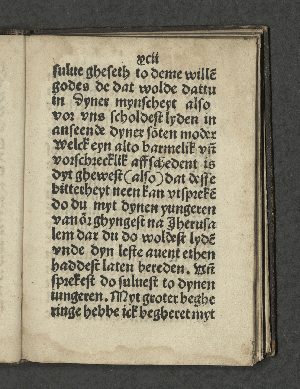 xcii
sulue gheseth to deme wille͞
godes de dat wolde dattu
in dyner mynscheyt also
vor vns scholdest lyden in
anseende dyner soten moder
Welck eyn alto barmelik vn̄
vorschrecklik affschedent is
dyt ghewest (also) dat desse
bitterheyt neen kan vtspreke͞
do du myt dynen yungeren
van ȏr ghyngest na Iherusa
lem dar du do woldest lyde͞
vnde dyn leste auent ethen
haddest laten bereden. Vn̄
sprekest do suluest to dynen
iungeren. Myt groter beghe
ringe hebbe ick begheret myt